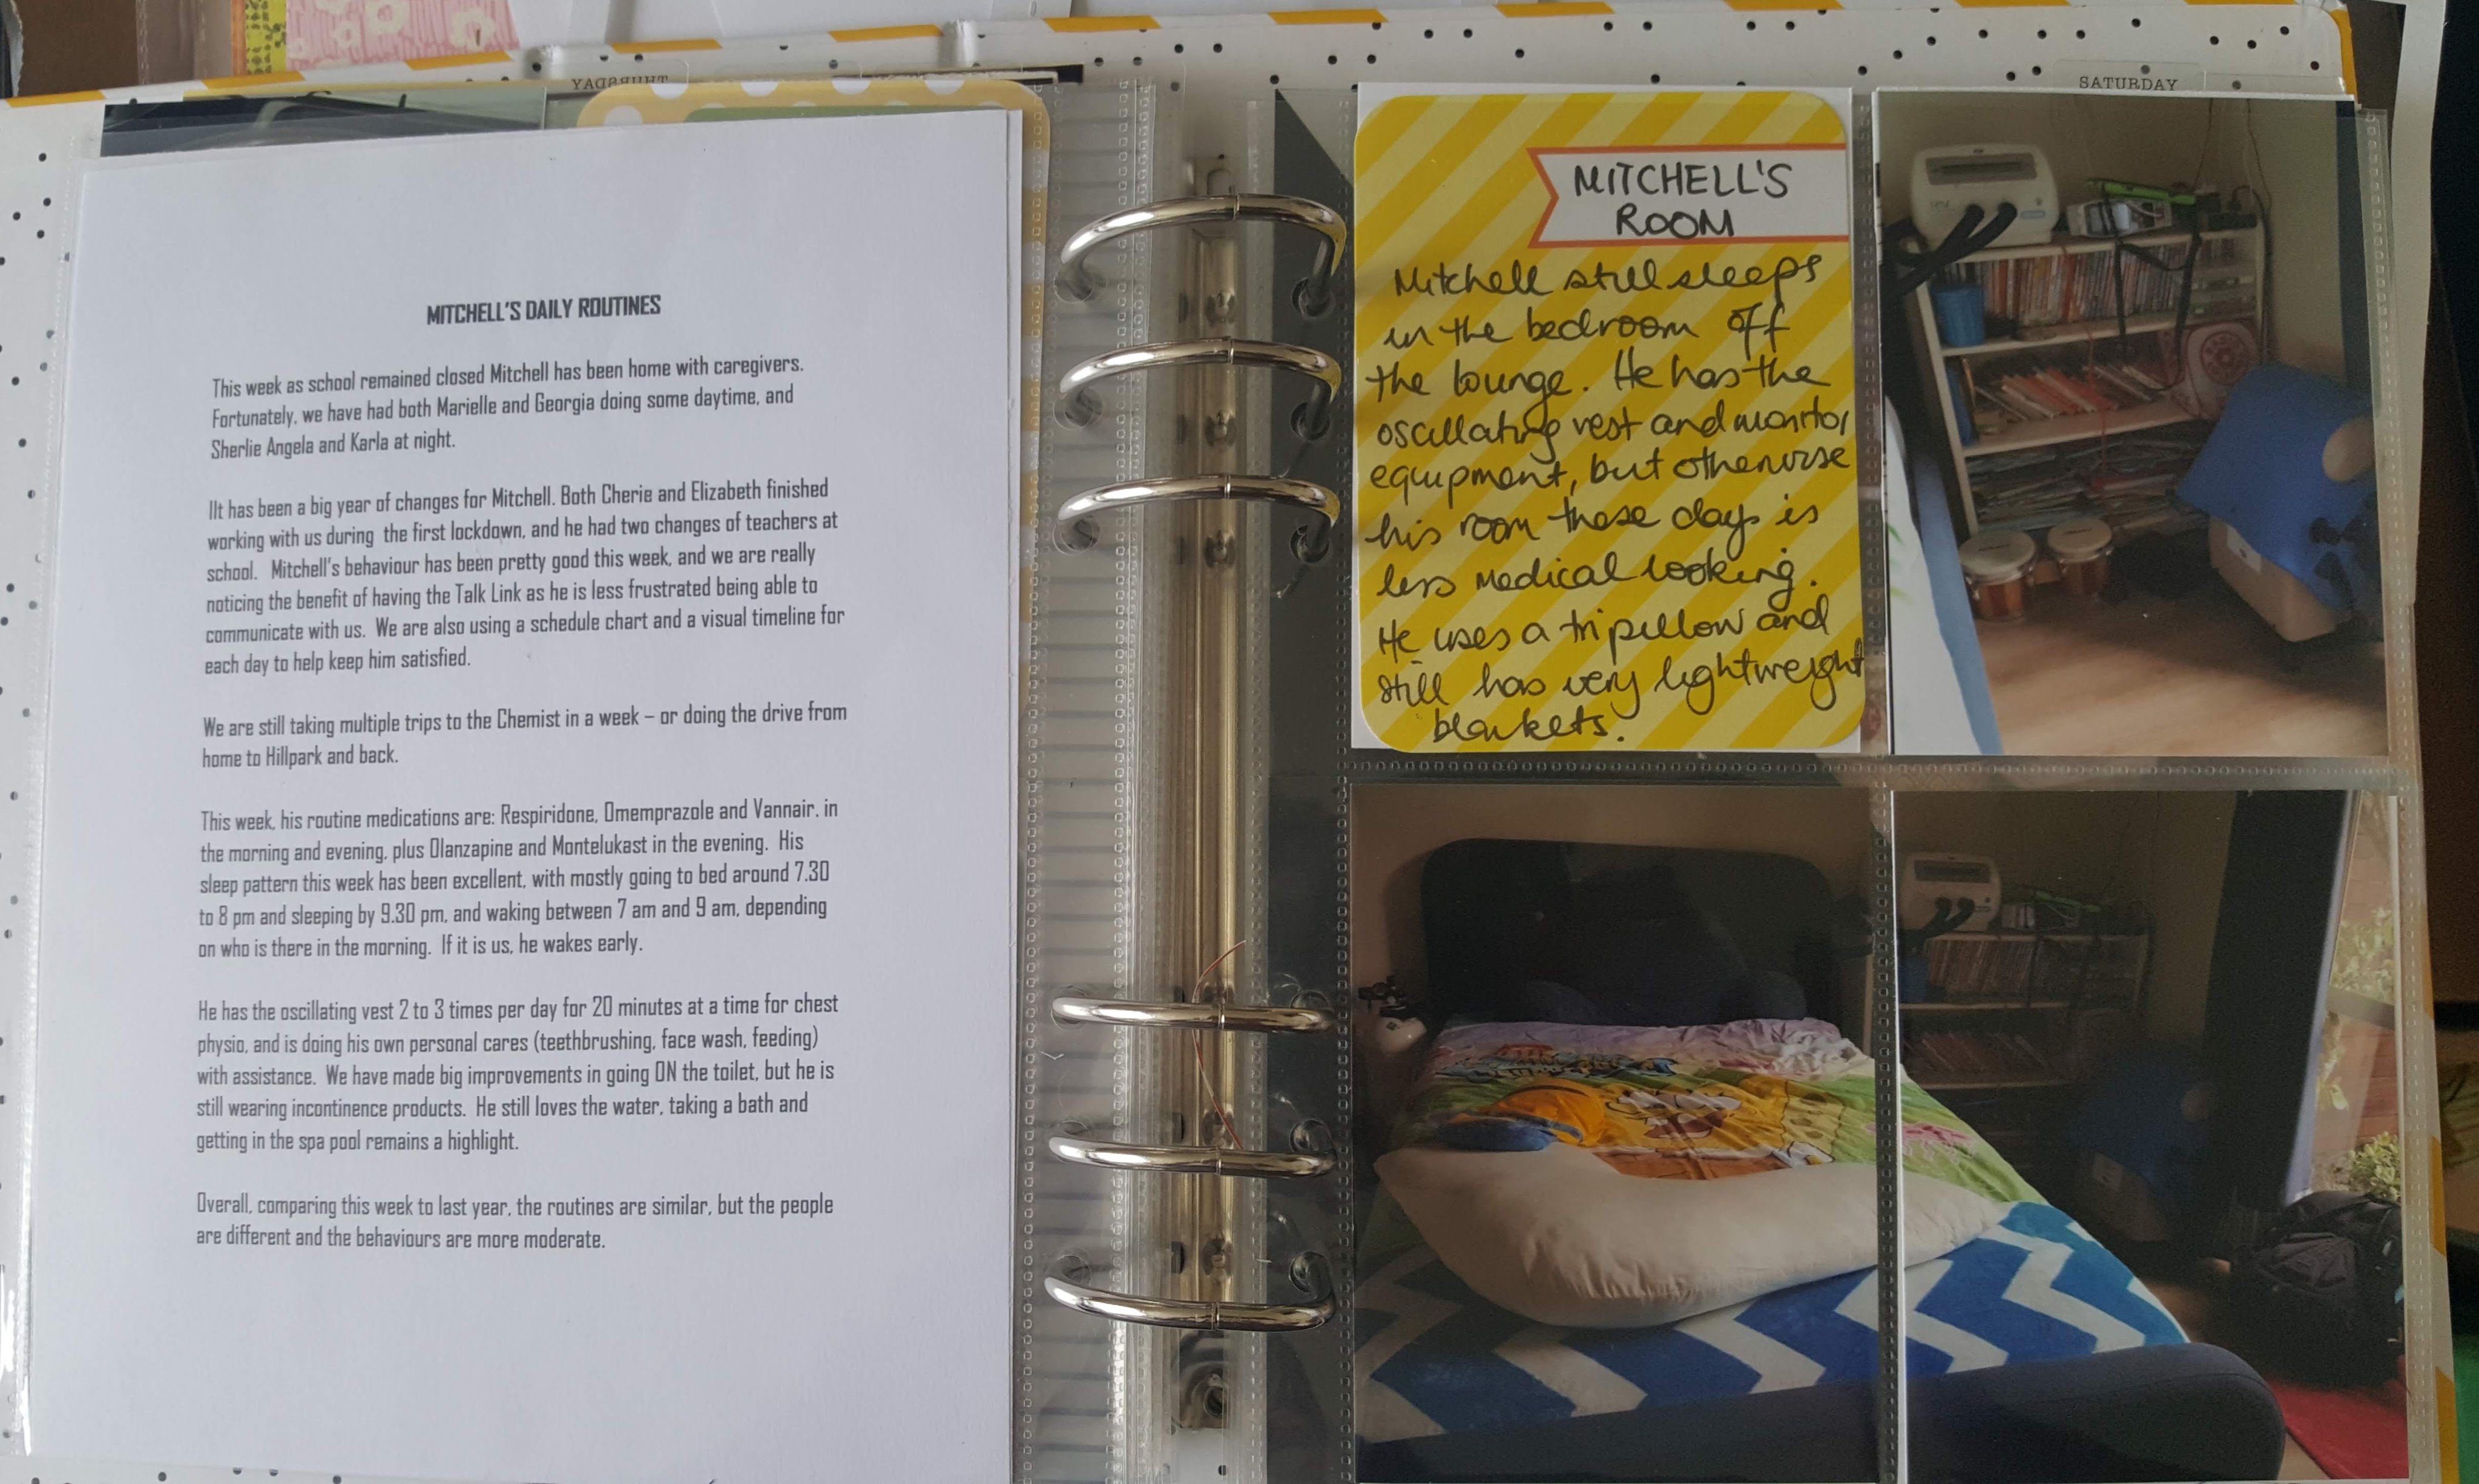 THURSDAY
SATURDAY
MITCHELL'S DAILY ROUTINES
This week as school remained closed Mitchell has been home with caregivers.
Fortunately, we have had both Marielle and Georgia doing some daytime, and
Sherlie Angela and Karla at night.
IIt has been a big year of changes for Mitchell. Both Cherie and Elizabeth finished
working with us during the first lockdown, and he had two changes of teachers at
school. Mitchell's behaviour has been pretty good this week, and we are really
noticing the benefit of having the Talk Link as he is less frustrated being able to
communicate with us. We are also using a schedule chart and a visual timeline for
each day to help keep him satisfied.
We are still taking multiple trips to the Chemist in a week – or doing the drive from
home to Hillpark and back.
This week, his routine medications are: Respiridone, Omemprazole and Vannair. in
the morning and evening, plus Olanzapine and Montelukast in the evening. His
sleep pattern this week has been excellent, with mostly going to bed around 7.30
to 8 pm and sleeping by 9.30 pm, and waking between 7 am and 9 am, depending
on who is there in the morning. If it is us, he wakes early.
He has the oscillating vest 2 to 3 times per day for 20 minutes at a time for chest
physio, and is doing his own personal cares (teethbrushing, face wash, feeding)
with assistance. We have made big improvements in going ON the toilet, but he is
still wearing incontinence products. He still loves the water, taking a bath and
getting in the spa pool remains a highlight.
Overall, comparing this week to last year, the routines are similar, but the people
are different and the behaviours are more moderate.
MITCHELL'S
ROOM
Mitchell still sleeps
in the bedroom off
the lounge. He has the
oscillating vest and monitor
equipment, but otherwise
his room these days is
less medical looking.
He uses a tri pillow and
still has very lightweight
blankets.